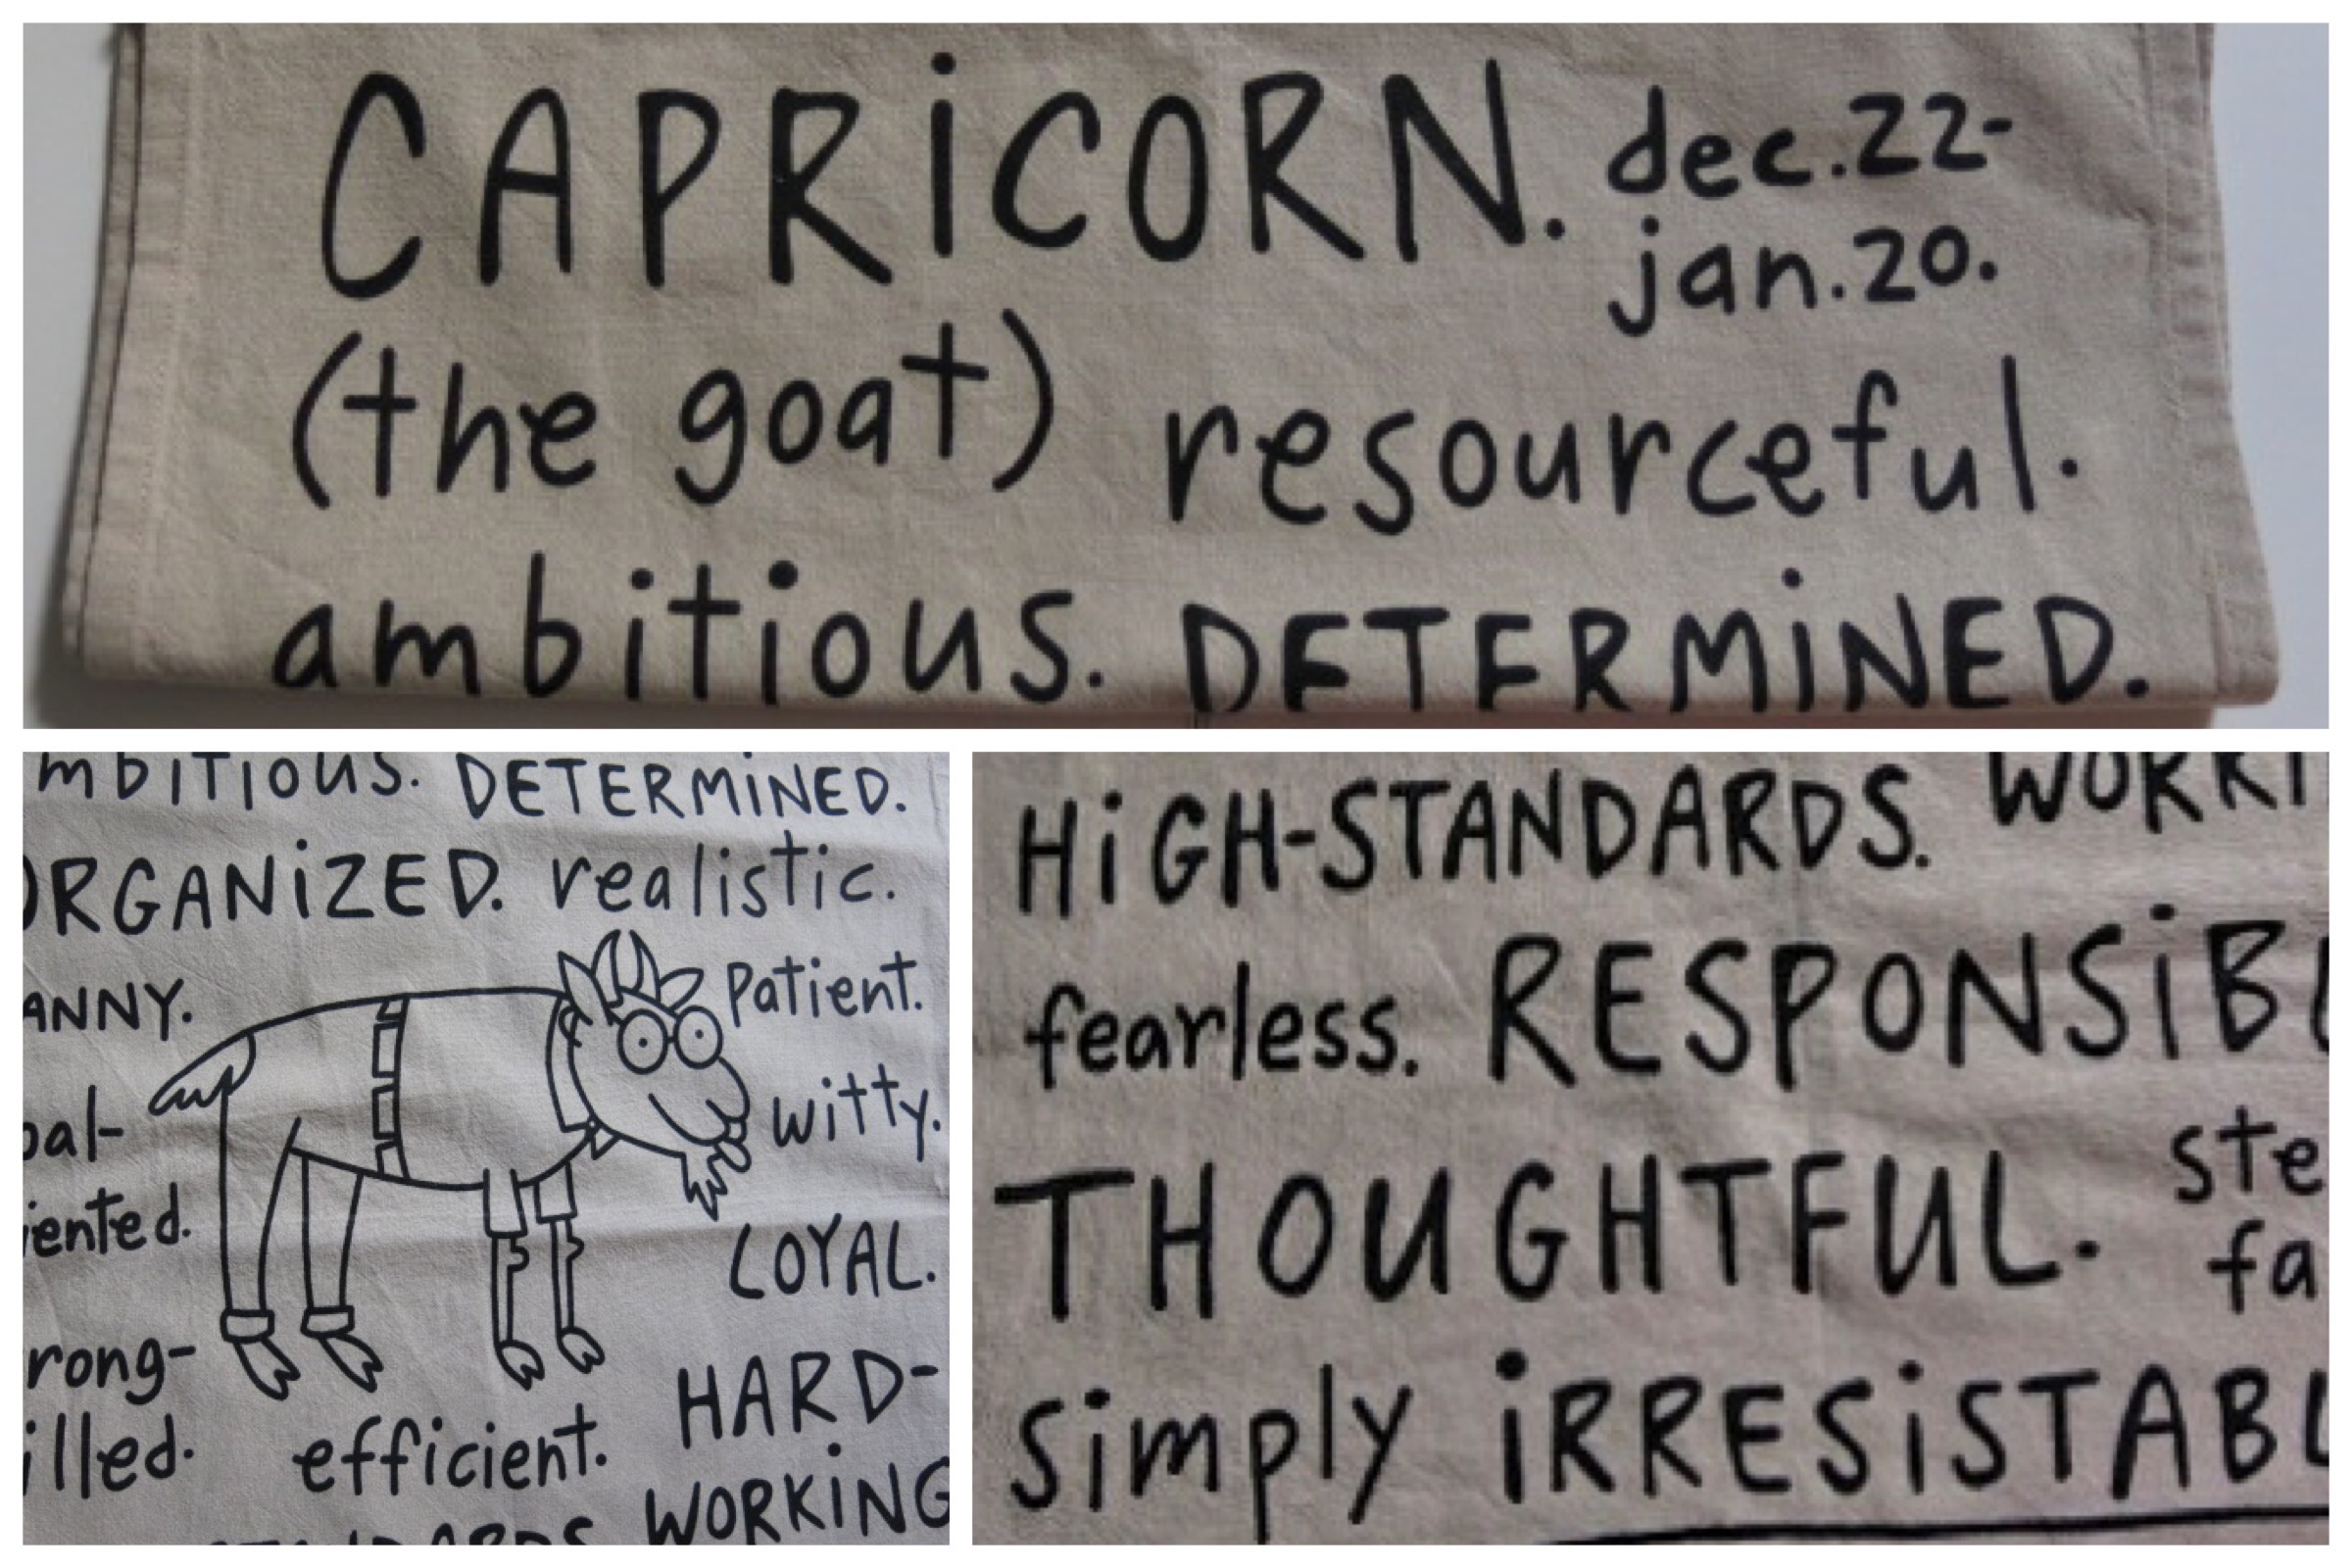 CAPRiCORN. dec.22-
jan.20.
(the goat) resourceful.
ambitious. DETERMiNED.
mbitious. DETERMiNED.
ORGANiZED. realistic.
ANNY. patient.
oal- witty.
iented. LOYAL.
rong- HARD-
illed. efficient. WORKiNG
STANDARDS
HiGH-STANDARDS. WORKI
fearless. RESPONSiBL
THOUGHTFUL. ste
fa
simply iRRESiSTABL